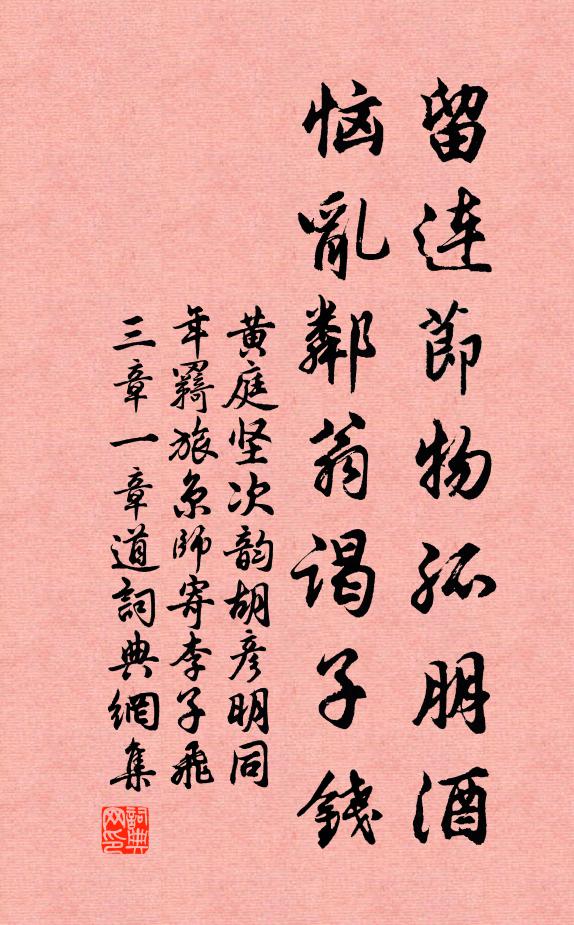 留连節物孤朋酒
恼亂鄰翁谒子錢
黄庭坚次韵胡彦明同
年羇旅京師寄李子飛
三章一章道詞典網集
詞典网印